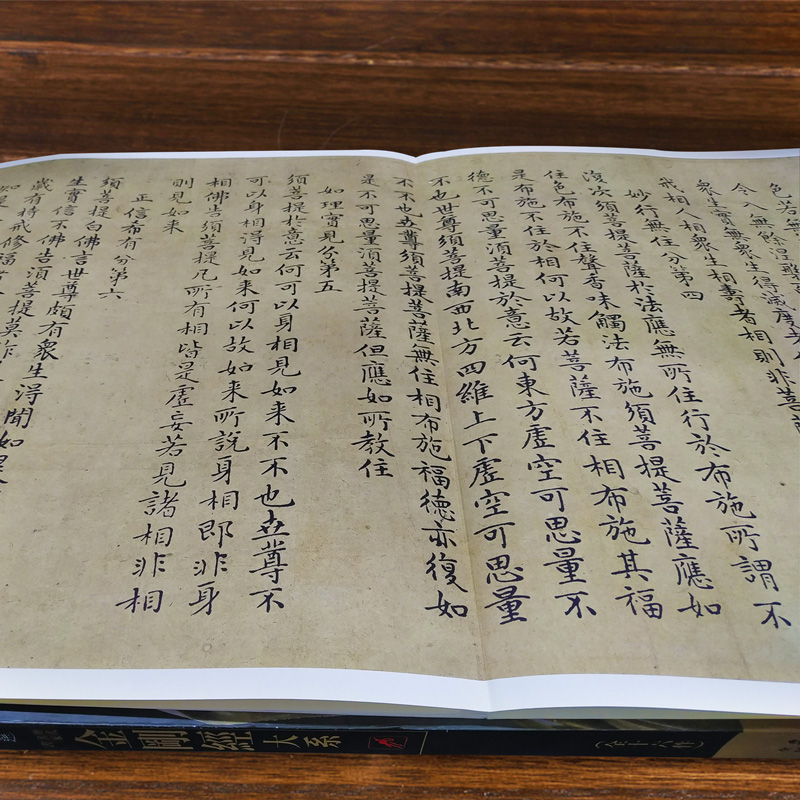 色若無
令入無餘涅槃而
衆生實無衆生得滅度者
我相人相衆生相壽者相則非菩薩
妙行無住分第四
復次須菩提菩薩於法應無所住行於布施所謂不
住色布施不住聲香味觸法布施須菩提菩薩應如
是布施不住於相何以故若菩薩不住相布施其福
德不可思量須菩提於意云何東方虛空可思量不
不也世尊須菩提南西北方四維上下虛空可思量
不不也世尊須菩提菩薩無住相布施福德亦復如
是不可思量須菩提菩薩但應如所教住
如理實見分第五
須菩提於意云何可以身相見如来不不也世尊不
可以身相得見如来何以故如来所說身相即非身
相佛告須菩提凡所有相皆是虛妄若見諸相非相
則見如来
正信希有分第六
須菩提白佛言世尊頗有衆生得聞如是
生實信不佛告須菩提莫作
歲有持戒修福
金剛經大系